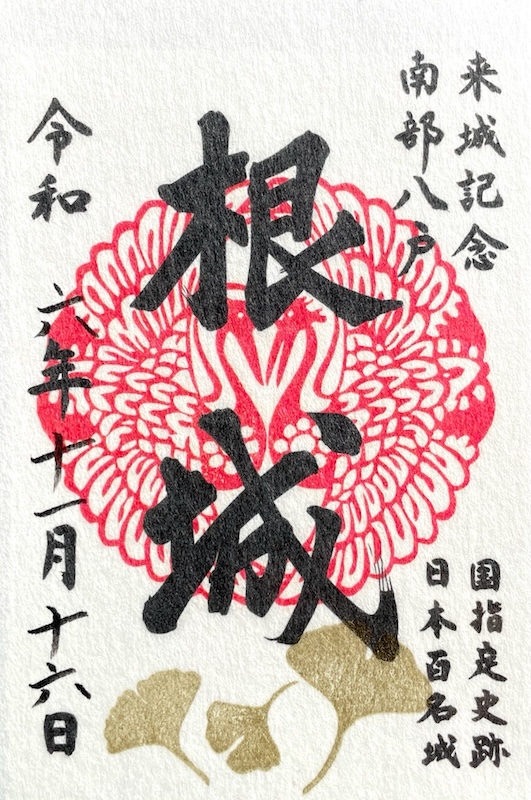 来城記念
南部八戸
国指定史跡
日本百名城
根城
令和六年十一月十六日